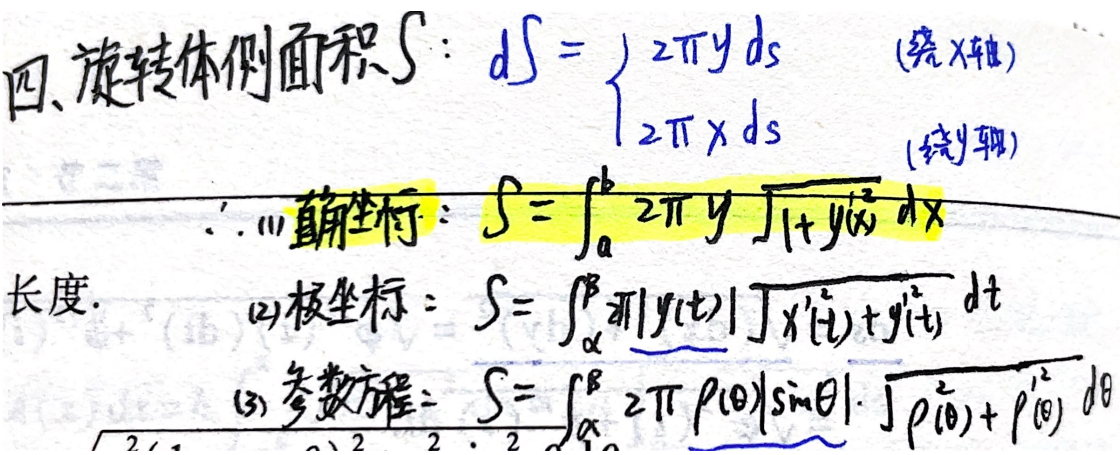 四、旋转体侧面积S: dS = { 2πy ds (绕x轴)
2πx ds (绕y轴)
∴ (1) 直角坐标: S = ∫_a^b 2πy √(1+y'²(x)) dx
长度.
(2) 极坐标: S = ∫_α^β 2π|y(t)| √(x'²(t)+y'²(t)) dt
(3) 参数方程: S = ∫_α^β 2πρ(θ)|sinθ|·√(ρ²(θ)+ρ'²(θ)) dθ